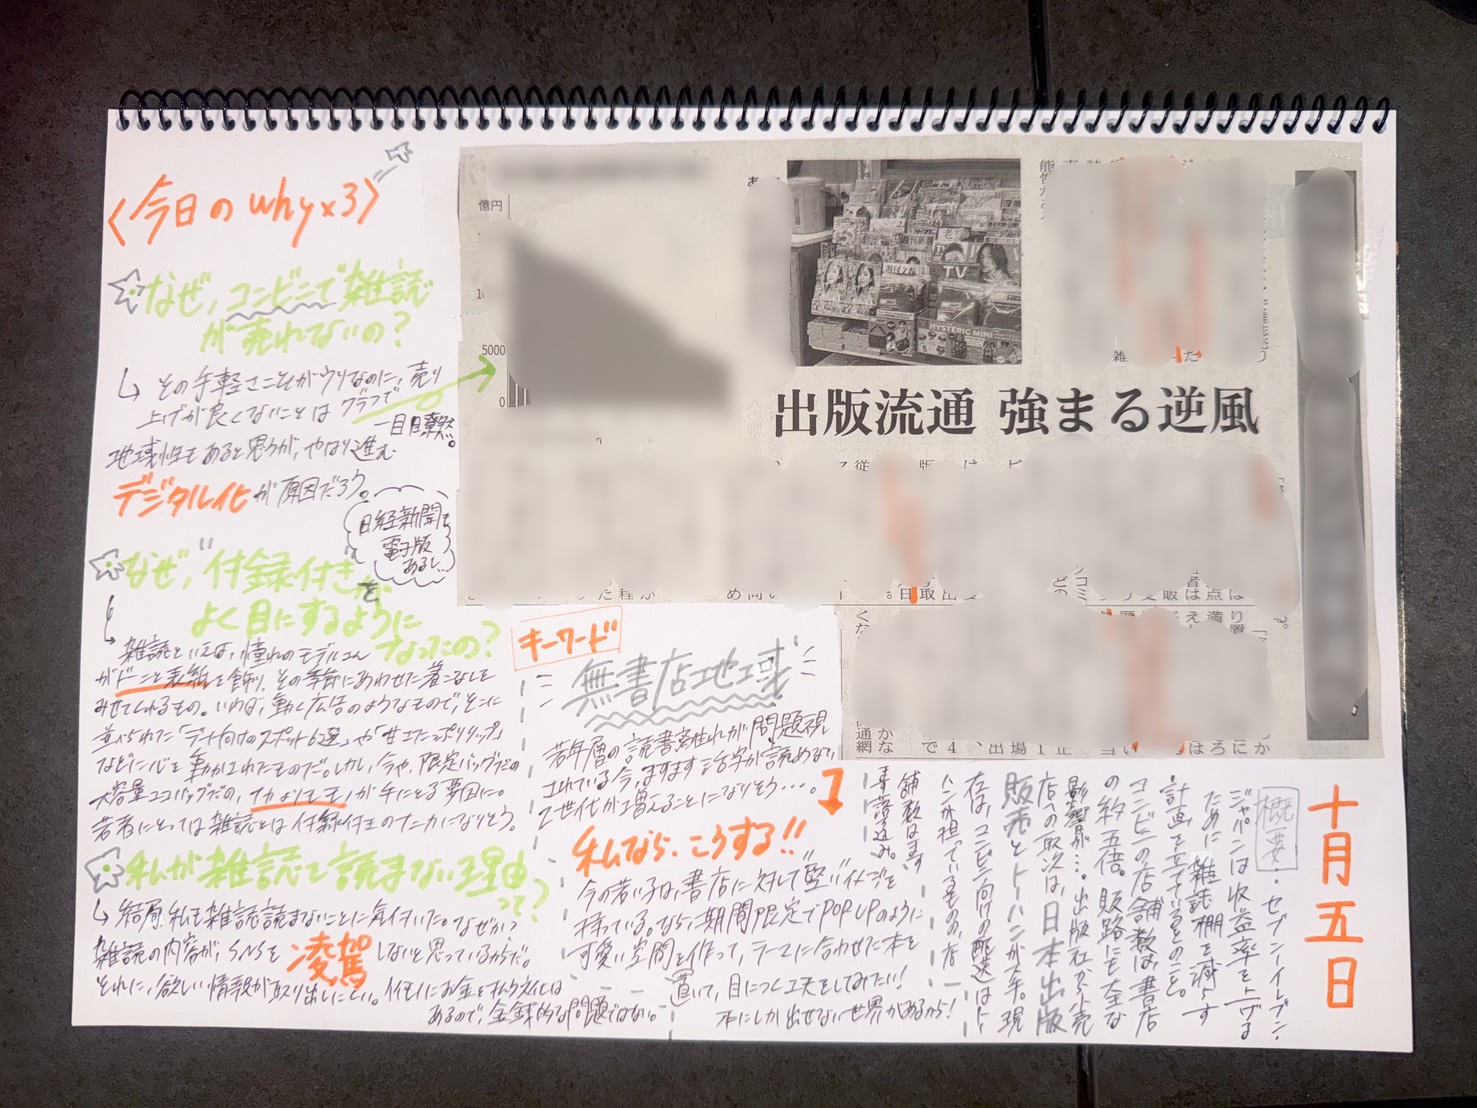 〈今日のwhy×3〉
なぜ、コンビニで雑誌
が売れないの?
↳ その手軽さこそがウリなのに、売り
上げが良くないことはグラフで
一目瞭然。
地域性もあると思うが、やはり進む
デジタル化が原因だろう。
日経新聞も
電子版
あるし、
なぜ、"付録付き"を
よく目にするように
なったの?
雑誌といえば、憧れのモデルさん
がドーンと表紙を飾り、その季節にあわせた着こなしを
みせてくれるもの。いわば、動く広告のようなもので、そこに
並べられた「デート向けのスポット6選」や「甘エたっぷりリップ」
などに心を動かされたものだ。しかし、今や、限定バッグだの
大容量エコバッグだの、ナカよりモノが手にとる要因に。
若者にとっては雑誌とは付録付きのナニカになりそう。
私が雑誌を読まない理由
って?
↳ 結局、私も雑誌読まないことに気付いた。なぜか?
雑誌の内容が、SNSを凌駕しないと思っているからだ。
それに、欲しい情報が取り出しにくい。イイモノにお金を払う文化は
あるので、金銭的な問題ではない。
億円
5000
0
TV
HYSTERIC MINI
出版流通 強まる逆風
キーワード
無書店地域
若年層の読書離れが問題視
されている今、ますます活字が読めない
Z世代が増えることになりそう・・・。
私なら、こうする!!
今の若い子は、書店に対して"堅い"イメージを
持っている。ならば、期間限定でPOPUPのように
可愛い空間を作って、テーマに合わせた本を
置いて、目につく工夫をしてみたい!
本にしか出せない世界があるから!
十月五日
概要・セブン-イレブン・
ジャパンは収益率を上げる
ために雑誌棚を減らす
計画を立てているとのこと。
コンビニの店舗数は、書店
の約五倍。販路にも大きな
影響が…。出版社から小売
店への取次は、日本出版
販売とトーハンが大手。現
在は、コンビニ向けの配送はトー
ハンが担っているものの、店
舗数はまず
落込み。